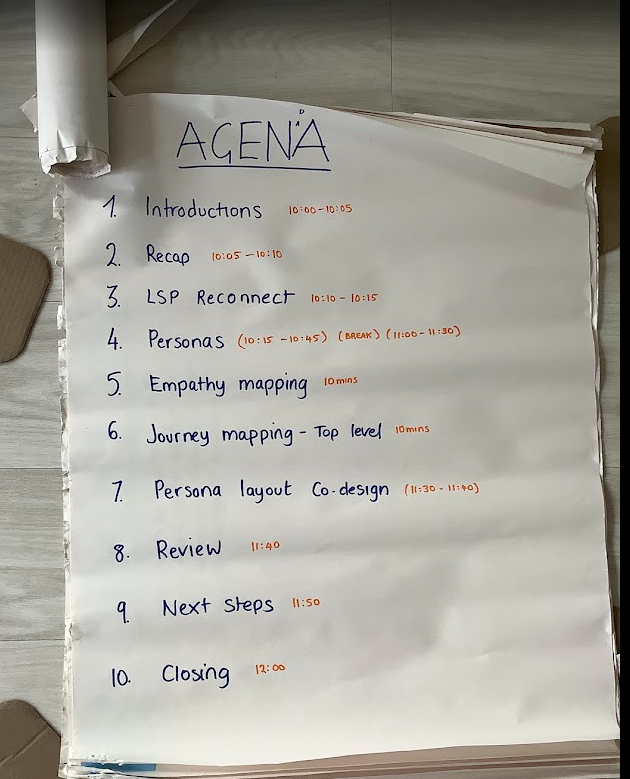 AGENDA
1. Introductions 10:00-10:05
2. Recap 10:05-10:10
3. LSP Reconnect 10:10-10:15
4. Personas (10:15-10:45) (BREAK) (11:00-11:30)
5. Empathy mapping 10mins
6. Journey mapping - Top level 10mins
7. Persona layout Co-design (11:30-11:40)
8. Review 11:40
9. Next steps 11:50
10. Closing 12:00